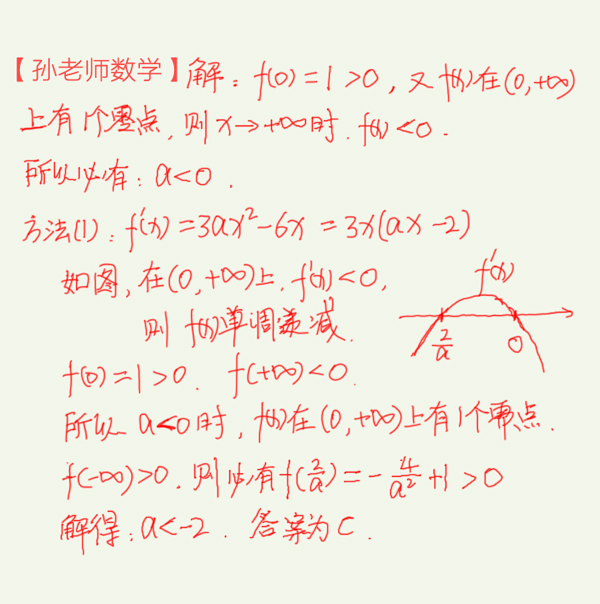 【孙老师数学】解：f(0)=1>0，又f(x)在(0,+∞)
上有1个零点，则x→+∞时，f(x)<0.
所以必有：a<0.
方法(1)：f'(x)=3ax²-6x=3x(ax-2)
如图，在(0,+∞)上，f'(x)<0，
则f(x)单调递减.
f'(x)
2/a
0
f(0)=1>0. f(+∞)<0.
所以a<0时，f(x)在(0,+∞)上有1个零点.
f(-∞)>0. 则必有f(2/a)=-4/a²+1>0
解得：a<-2. 答案为C.